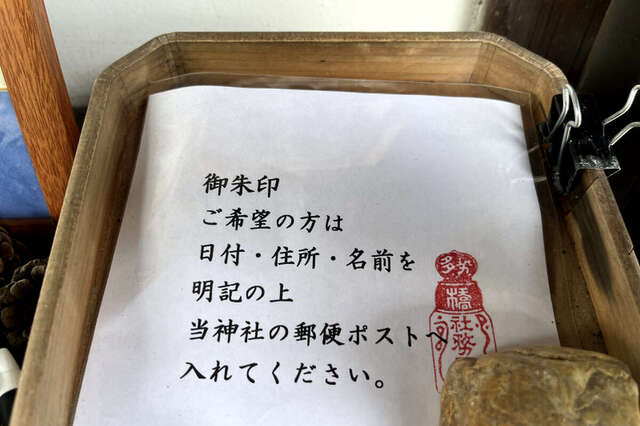 御朱印
ご希望の方は
日付・住所・名前を
明記の上
当神社の郵便ポストへ
入れてください。